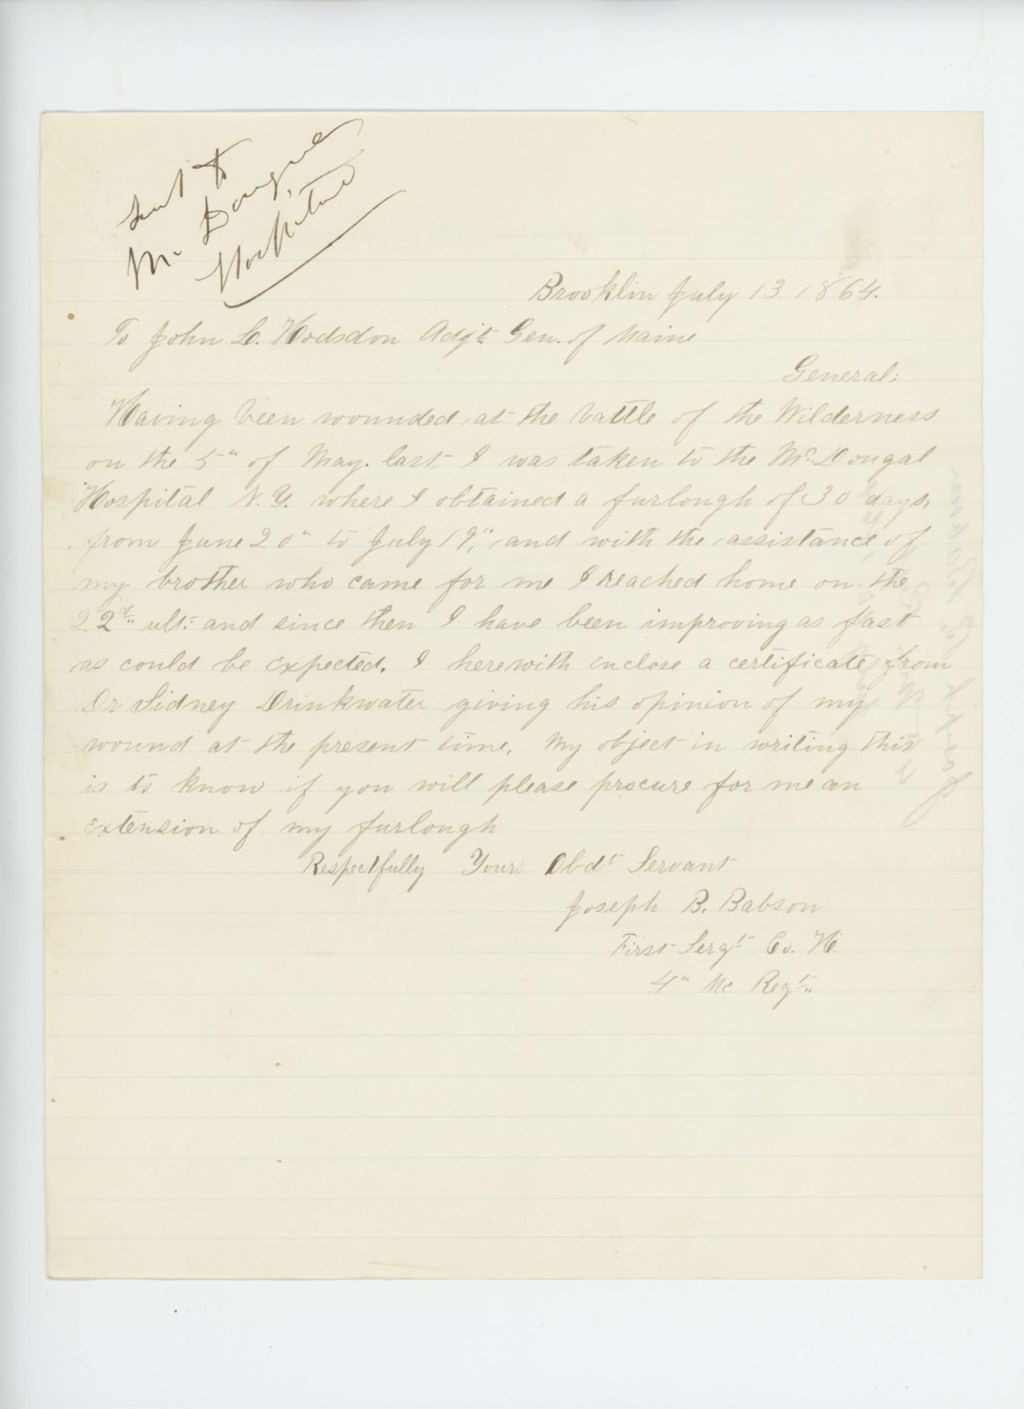 Sent to
Mc Dougal
Hospital
Brooklin July 13. 1864.
To John L. Hodsdon Adjt. Gen. of Maine
General:
Having been wounded at the battle of the Wilderness
on the 5" of May. last I was taken to the Mc.Dougal
Hospital N.Y. where I obtained a furlough of 30 days,
from June 20" to July 19," and with the assistance of
my brother who came for me I reached home on the
22d" ult: and since then I have been improving as fast
as could be expected. I herewith enclose a certificate from
Dr Sidney Drinkwater giving his opinion of my
wound at the present time. My object in writing this
is to know if you will please procure for me an
extension of my furlough
Respectfully Yours Obdt Servant
Joseph B. Babson
First Sergt Co. H.
4" Me Regt"